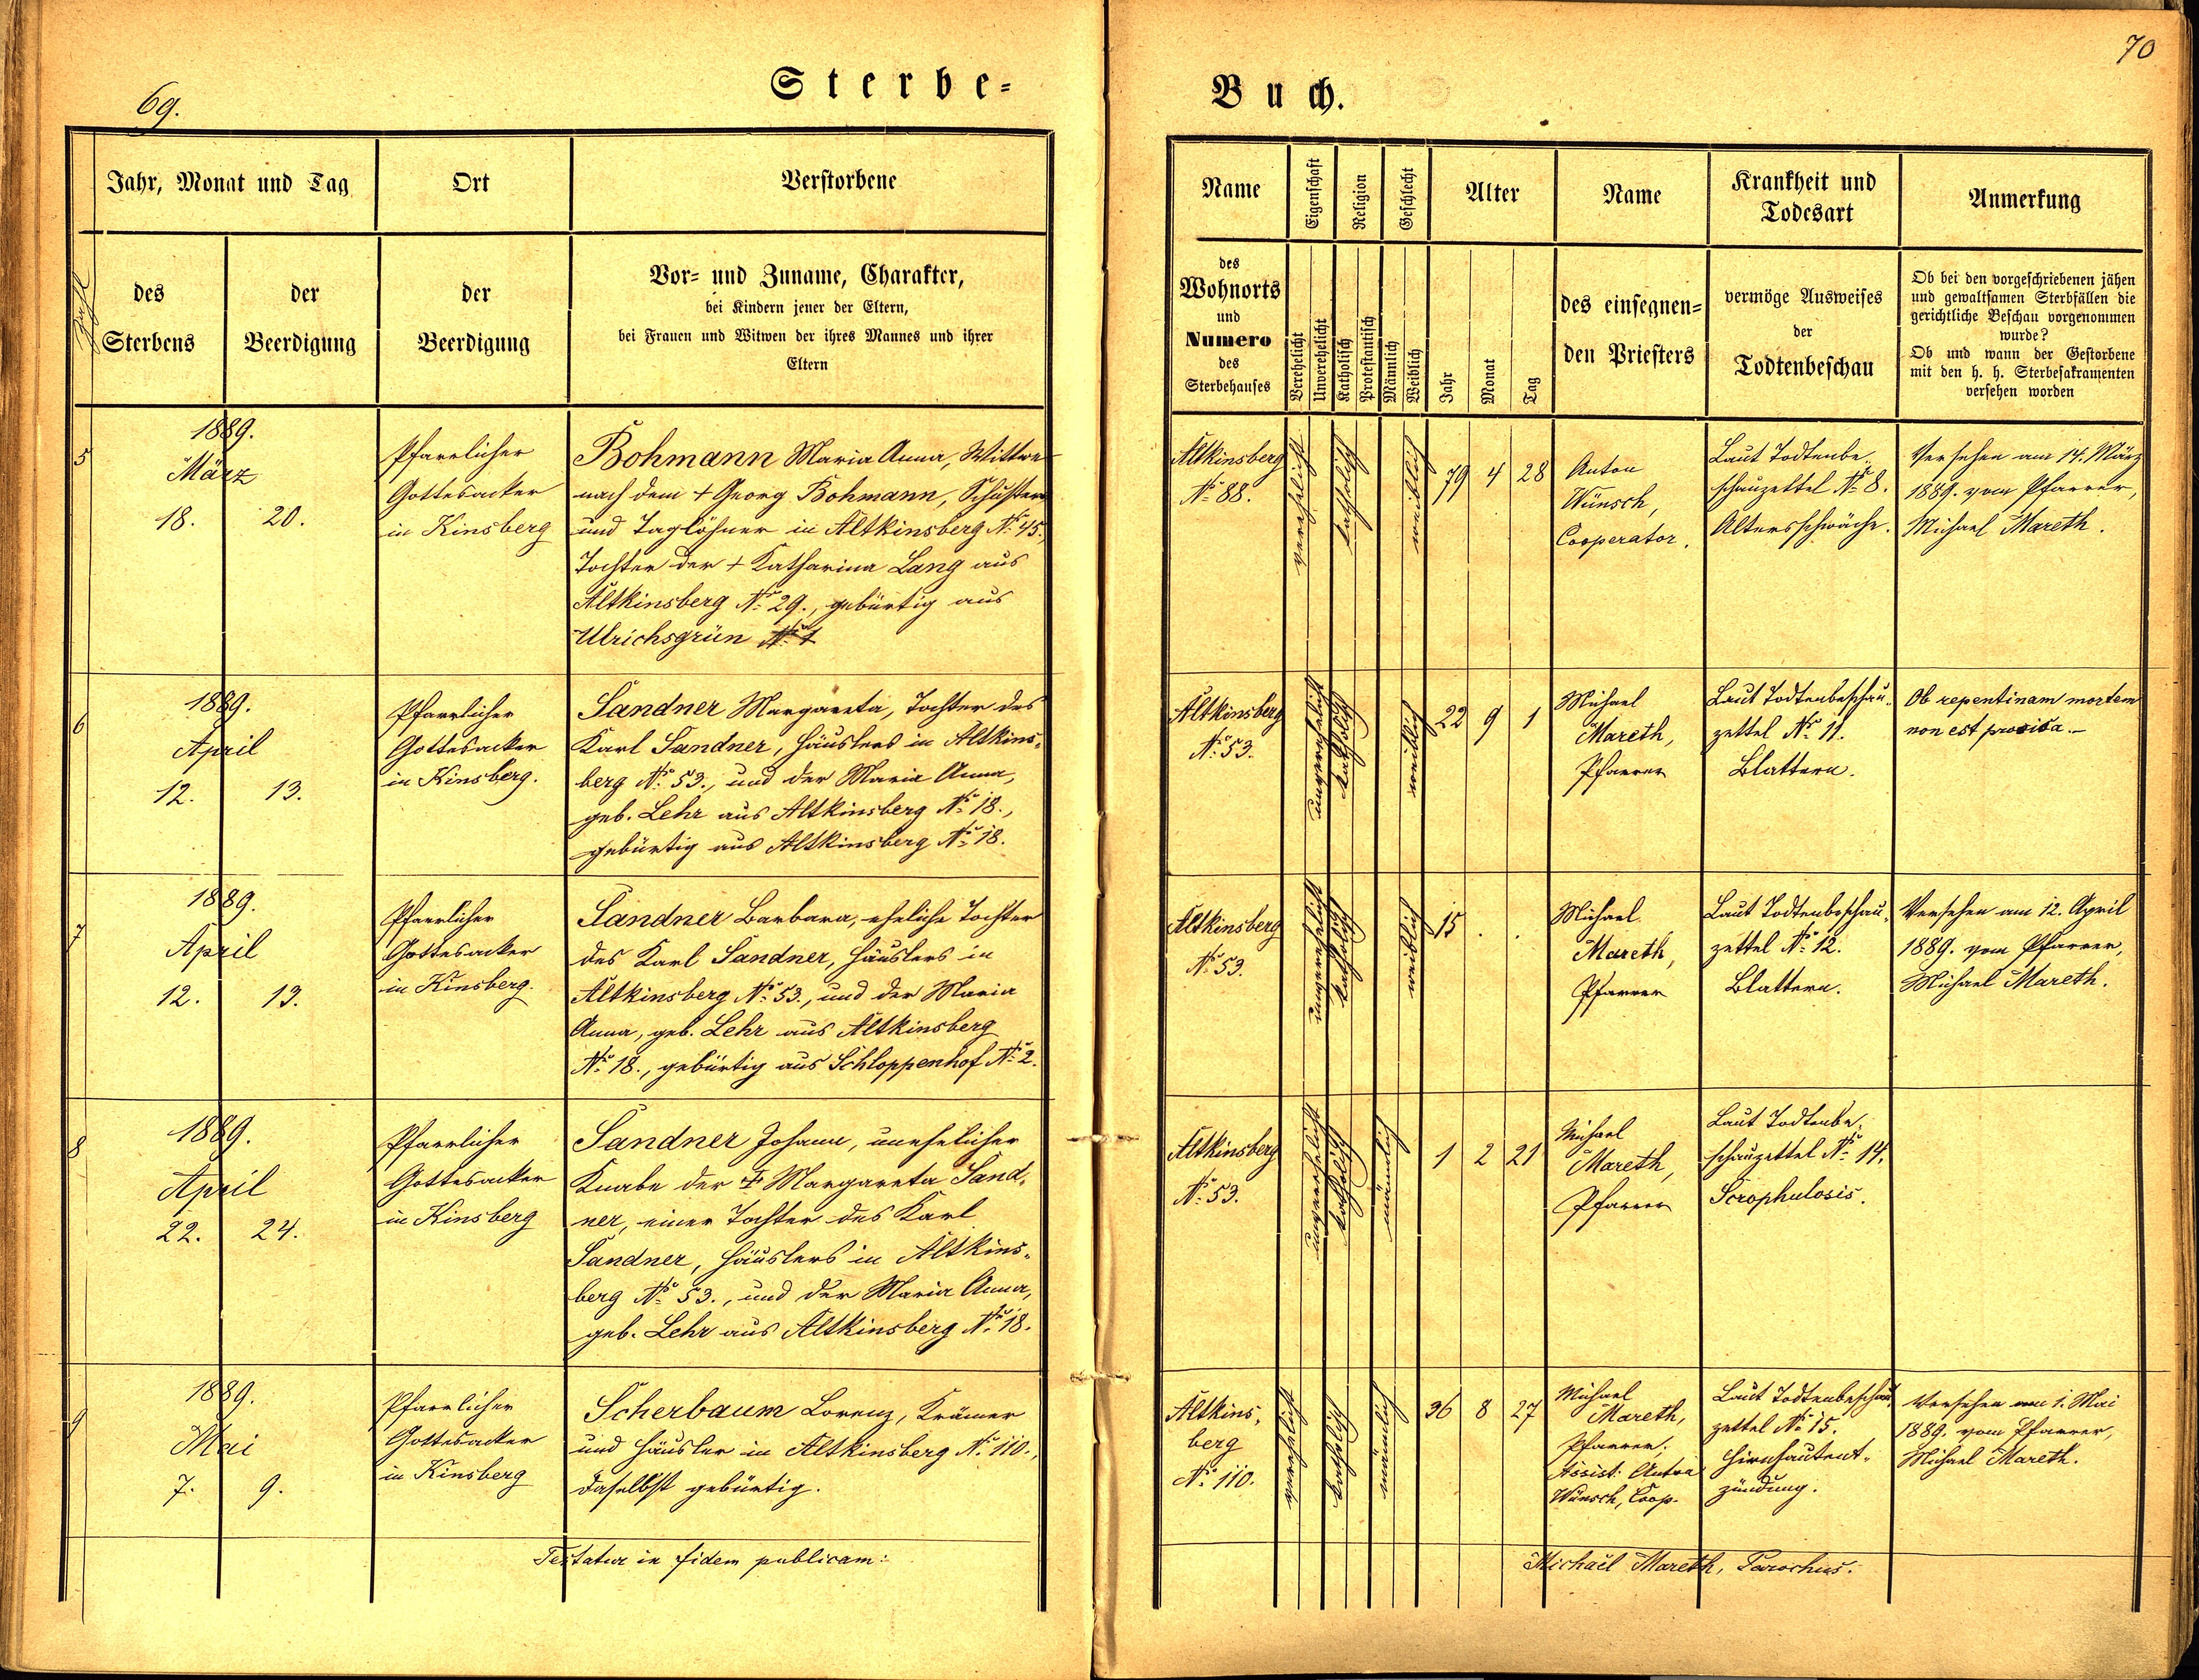 69.
Sterbe-
Zahl
Jahr, Monat und Tag
des
Sterbens
der
Beerdigung
Ort
der
Beerdigung
Verstorbene
Vor- und Zuname, Charakter,
bei Kindern jener der Eltern,
bei Frauen und Witwen der ihres Mannes und ihrer
Eltern
5
1889.
März
18. 20.
Pfarrlicher
Gottesacker
in Kinsberg
Bohmann Maria Anna, Wittwe
nach dem + Georg Bohmann, Schuster
und Taglöhner in Altkinsberg No 45.,
Tochter der + Katharina Lang aus
Altkinsberg No 29., gebürtig aus
Ulrichsgrün No 1
6
1889.
April
12. 13.
Pfarrlicher
Gottesacker
in Kinsberg.
Sandner Margareta, Tochter des
Karl Sandner, Häuslers in Altkins-
berg No 53., und der Maria Anna,
geb. Lehr aus Altkinsberg No 18.,
gebürtig aus Altkinsberg No 18.
7
1889.
April
12. 13.
Pfarrlicher
Gottesacker
in Kinsberg.
Sandner Barbara, eheliche Tochter
des Karl Sandner, Häuslers in
Altkinsberg No 53., und der Maria
Anna, geb. Lehr aus Altkinsberg
No 18., gebürtig aus Schloppenhof No 2.
8
1889.
April
22. 24.
Pfarrlicher
Gottesacker
in Kinsberg
Sandner Johann, unehelicher
Knabe der + Margareta Sand-
ner, einer Tochter des Karl
Sandner, Häuslers in Altkins-
berg No 53., und der Maria Anna,
geb. Lehr aus Altkinsberg No 18.
9
1889.
Mai
7. 9.
Pfarrlicher
Gottesacker
in Kinsberg
Scherbaum Lorenz, Krämer
und Häusler in Altkinsberg No 110.,
daselbst gebürtig.
Testatur in fidem publicam:
70
Buch.
Name
des
Wohnorts
und
Numero
des
Sterbehauses
Eigenschaft
Verehelicht
Unverehelicht
Religion
Katholisch
Protestantisch
Geschlecht
Männlich
Weiblich
Alter
Jahr
Monat
Tag
Name
des einsegnen-
den Priesters
Krankheit und
Todesart
vermöge Ausweises
der
Todtenbeschau
Anmerkung
Ob bei den vorgeschriebenen jähen
und gewaltsamen Sterbfällen die
gerichtliche Beschau vorgenommen
wurde?
Ob und wann der Gestorbene
mit den h. h. Sterbesakramenten
versehen worden
Altkinsberg
No 88.
verehelicht
katholisch
weiblich
79 4 28
Anton
Wünsch,
Cooperator.
Laut Todtenbe-
schauzettel No 8.
Altersschwäche.
Versehen am 14. März
1889. vom Pfarrer,
Michael Mareth.
Altkinsberg
No 53.
unverehelicht
katholisch
weiblich
22 9 1
Michael
Mareth,
Pfarrer
Laut Todtenbeschau-
zettel No 11.
Blattern.
Ob repentinam mortem
non est provisa.-
Altkinsberg
No 53.
unverehelicht
katholisch
weiblich
15 . .
Michael
Mareth,
Pfarrer
Laut Todtenbeschau-
zettel No 12.
Blattern.
Versehen am 12. April
1889. vom Pfarrer,
Michael Mareth.
Altkinsberg
No 53.
unverehelicht
katholisch
männlich
1 2 21
Michael
Mareth,
Pfarrer
Laut Todtenbe-
schauzettel No 14.
Scrophulosis.
Altkins-
berg
No 110.
verehelicht
katholisch
männlich
36 8 27
Michael
Mareth,
Pfarrer.
Assist: Anton
Wünsch, Coop.
Laut Todtenbeschau-
zettel No 15.
Hirnhautent-
zündung.
Versehen am 1. Mai
1889. vom Pfarrer,
Michael Mareth.
Michaël Mareth, Parochus.